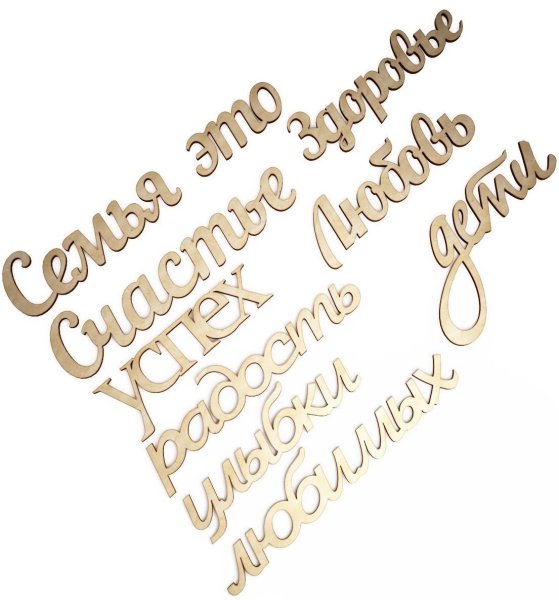 Семья это Здоровье
Счастье Любовь дети
успех
радость
улыбки
любимых